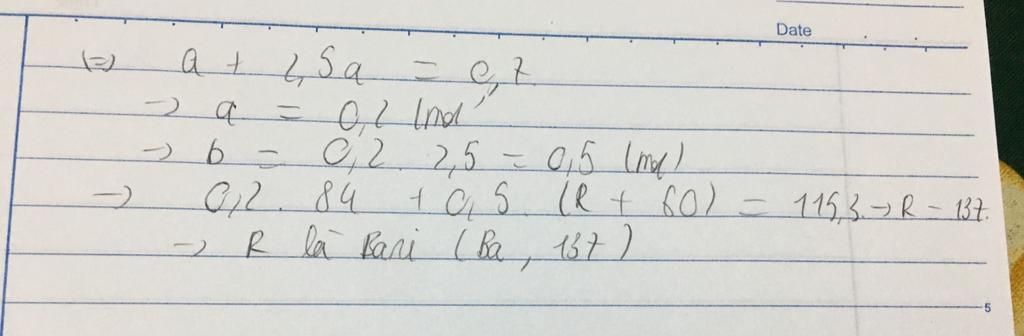 Date
(=) a + 2,5a = 0,7
-> a = 0,2 (mol)
-> b = 0,2. 2,5 = 0,5 (mol)
-> 0,2. 84 + 0,5. (R + 60) = 115,3 -> R = 137.
-> R là Bari (Ba, 137)
5